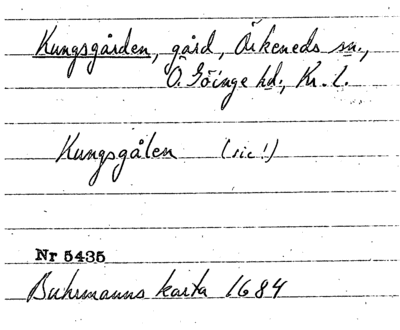 Kungsgården, gård, Örkeneds sn.,
Ö. Göinge hd., Kr. l.
Kungsgålen (sic!)
Nr 5435
Buhrmanns karta 1684